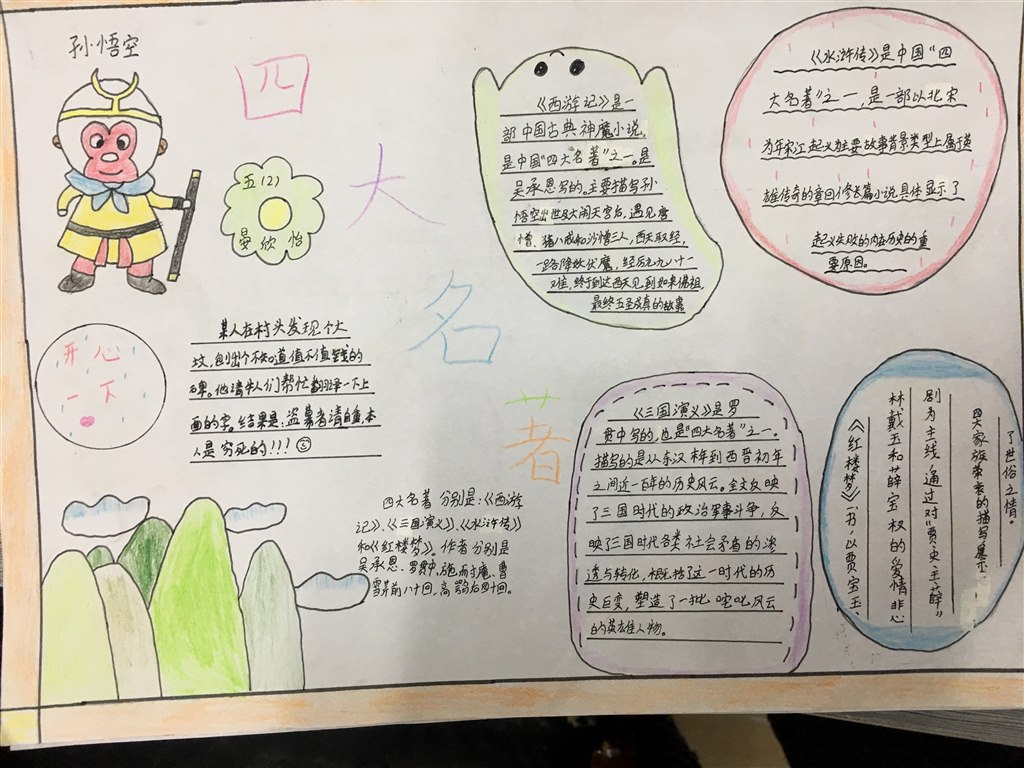 孙悟空
四
大
名
著
五(2)
晏欣怡
《西游记》是一
部中国古典神魔小说,
是中国"四大名著"之一。是
吴承恩写的。主要描写孙
悟空出世及大闹天宫后,遇见唐
僧、猪八戒和沙僧三人,西天取经,
一路降妖伏魔,经历九九八十一
难,终于到达西天见到如来佛祖,
最终五圣成真的故事
《水浒传》是中国"四
大名著"之一,是一部以北宋
为年宋江起义为主要故事背景类型上属于英
雄传奇的章回体长篇小说具体显示了
起义失败的内在历史的重
要原因。
开心
一下
某人在村头发现个大
坟,刨出个不知道值不值钱的
碑。他请牧人们帮忙翻译一下上
面的字。结果是:盗墓者请自重,本
人是穷死的!!!
四大名著分别是:《西游
记》、《三国演义》、《水浒传》
和《红楼梦》。作者分别是
吴承恩、罗贯中、施耐庵、曹
雪芹前八十回,高鹗后四十回。
《三国演义》是罗
贯中写的,也是"四大名著"之一。
描写的是从东汉末年到西晋初年
之间近一百年的历史风云。全文反映
了三国时代的政治军事斗争,反
映了三国时代各类社会矛盾的渗
透与转化,概括了这一时代的历
史巨变,塑造了一批咤叱风云
的英雄人物。
《红楼梦》一书,以贾宝玉、
林戴玉和薛宝钗的爱情悲
剧为主线,通过对"贾、史、王、薛"
四大家族荣衰的描写,展示
了世俗之情。